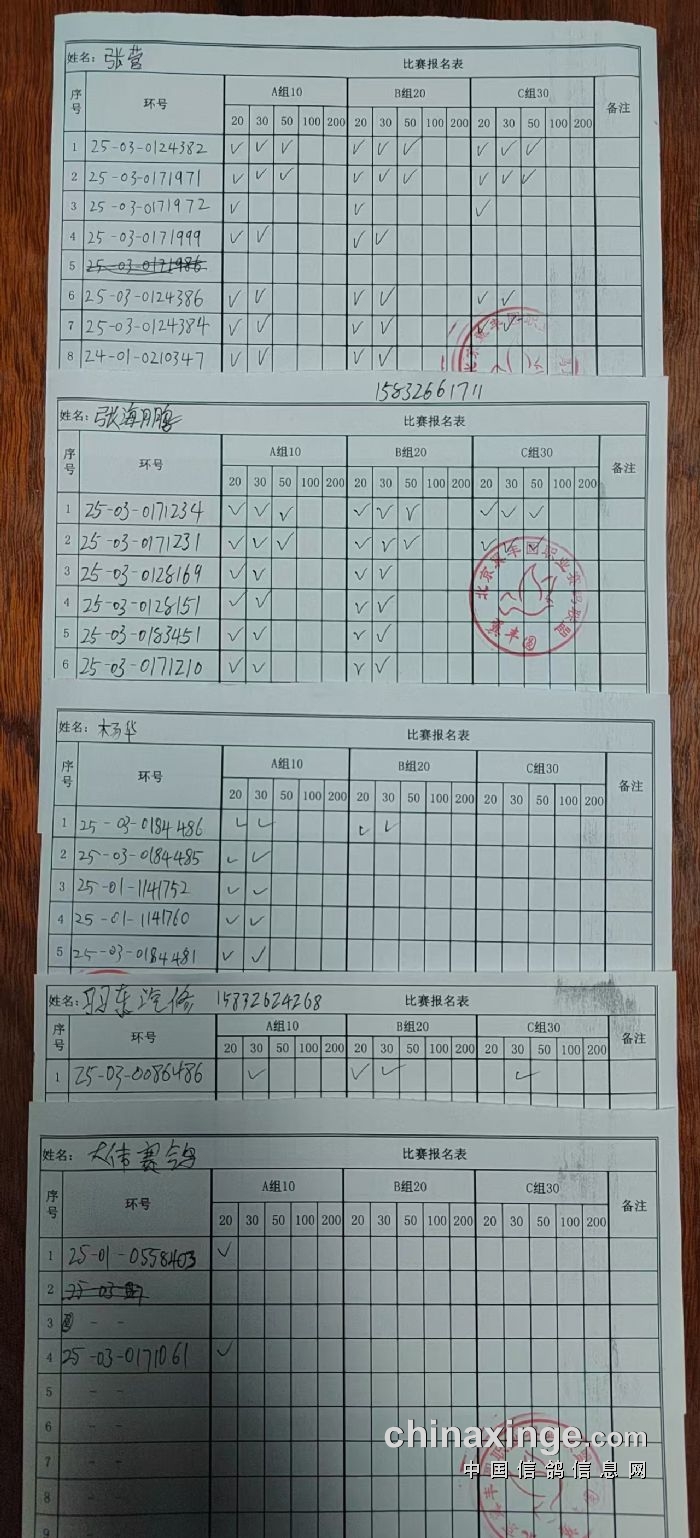 姓名：张营 比赛报名表
序号 环号 A组10 B组20 C组30 备注
20 30 50 100 200 20 30 50 100 200 20 30 50 100 200
1 25-03-0124382 ✓ ✓ ✓ ✓ ✓ ✓ ✓ ✓ ✓
2 25-03-0171971 ✓ ✓ ✓ ✓ ✓ ✓ ✓ ✓ ✓
3 25-03-0171972 ✓ ✓ ✓
4 25-03-0171999 ✓ ✓ ✓ ✓
5 25-03-0171986
6 25-03-0124386 ✓ ✓ ✓ ✓ ✓ ✓
7 25-03-0124384 ✓ ✓ ✓ ✓ ✓ ✓
8 24-01-0210347 ✓ ✓ ✓ ✓
15832661711
姓名：张海鹏 比赛报名表
序号 环号 A组10 B组20 C组30 备注
20 30 50 100 200 20 30 50 100 200 20 30 50 100 200
1 25-03-0171234 ✓ ✓ ✓ ✓ ✓ ✓ ✓ ✓ ✓
2 25-03-0171231 ✓ ✓ ✓ ✓ ✓ ✓ ✓ ✓ ✓
3 25-03-0128169 ✓ ✓ ✓ ✓
4 25-03-0128151 ✓ ✓ ✓ ✓
5 25-03-0183451 ✓ ✓ ✓ ✓
6 25-03-0171210 ✓ ✓ ✓ ✓
姓名：杨华 比赛报名表
序号 环号 A组10 B组20 C组30 备注
20 30 50 100 200 20 30 50 100 200 20 30 50 100 200
1 25-03-0184486 ✓ ✓ ✓ ✓
2 25-03-0184485 ✓ ✓
3 25-01-1141752 ✓ ✓
4 25-01-1141760 ✓ ✓
5 25-03-0184481 ✓ ✓
姓名：东汽修 15832624268 比赛报名表
序号 环号 A组10 B组20 C组30 备注
20 30 50 100 200 20 30 50 100 200 20 30 50 100 200
1 25-03-0086486 ✓ ✓ ✓ ✓
姓名：大伟赛鸽 比赛报名表
序号 环号 A组10 B组20 C组30 备注
20 30 50 100 200 20 30 50 100 200 20 30 50 100 200
1 25-01-0558403 ✓
2 25-03
3 - -
4 25-03-0171061 ✓
5 - -
6 - -
7 - -
8 - -
9
chinaxinge.com
中国信鸽信息网